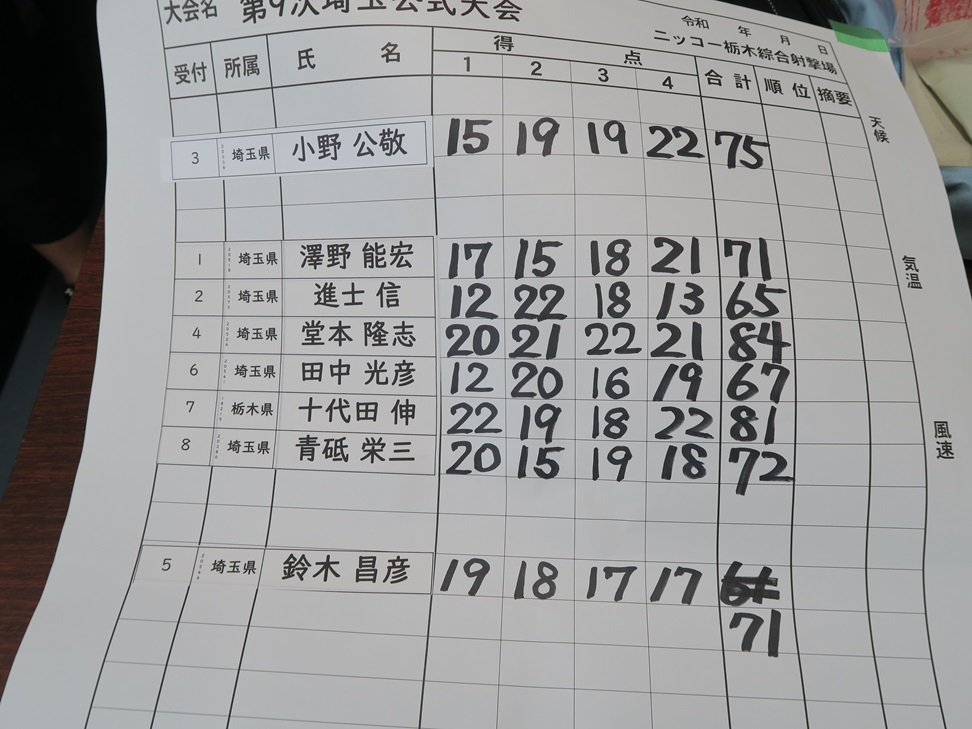 大会名 第9次埼玉公式大会
令和 年 月 日
ニッコー栃木綜合射撃場
受付 所属 氏 名 得 点 合計 順位 摘要
1 2 3 4
天候
3 埼玉県 小野 公敬 15 19 19 22 75
1 埼玉県 澤野 能宏 17 15 18 21 71
気温
2 埼玉県 進士 信 12 22 18 13 65
4 埼玉県 堂本 隆志 20 21 22 21 84
6 埼玉県 田中 光彦 12 20 16 19 67
7 栃木県 十代田 伸 22 19 18 22 81
風速
8 埼玉県 青砥 栄三 20 15 19 18 72
5 埼玉県 鈴木 昌彦 19 18 17 17
71